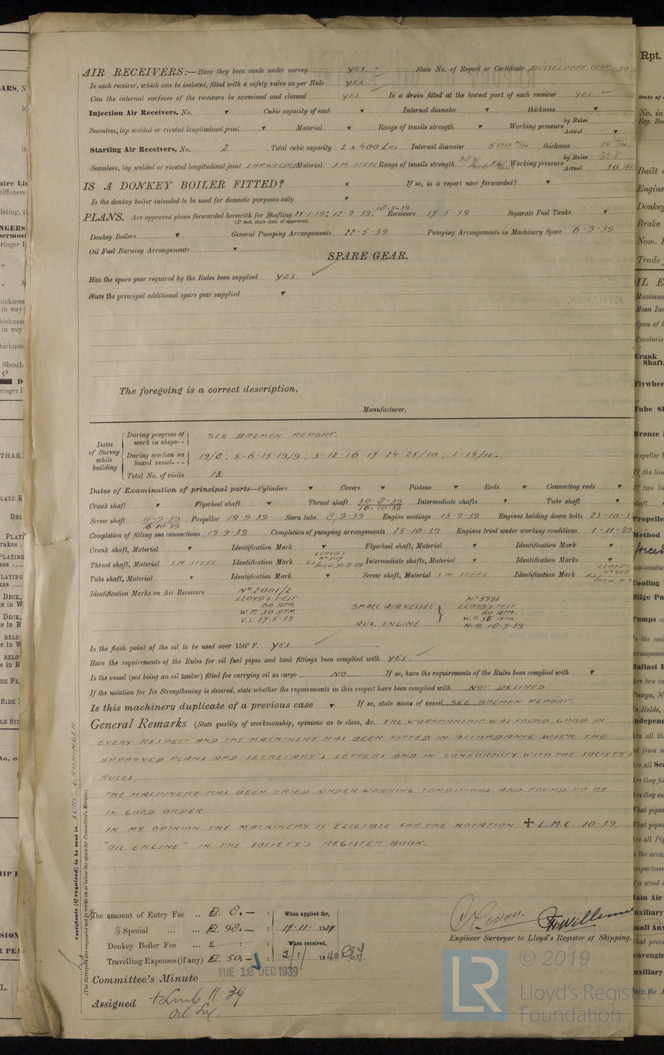 AIR RECEIVERS:—Have they been made under survey YES State No. of Report or Certificate DÜSSELDORF CERT.
Is each receiver, which can be isolated, fitted with a safety valve as per Rule YES
Can the internal surfaces of the receivers be examined and cleaned YES Is a drain fitted at the lowest part of each receiver YES
Injection Air Receivers, No. Cubic capacity of each Internal diameter thickness
Seamless, lap welded or riveted longitudinal joint Material Range of tensile strength Working pressure by Rules Actual
Starting Air Receivers, No. 2 Total cubic capacity 2 x 400 LRS Internal diameter 500 M/M thickness
Seamless, lap welded or riveted longitudinal joint LAPWELDED Material S.M. STEEL Range of tensile strength Working pressure by Rules Actual
IS A DONKEY BOILER FITTED? If so, is a report now forwarded?
Is the donkey boiler intended to be used for domestic purposes only
PLANS. Are approved plans forwarded herewith for Shafting 25-1-39; 12-9-39, Receivers 17-5-39 Separate Fuel Tanks
(If not, state date of approval)
Donkey Boilers General Pumping Arrangements 22-5-39 Pumping Arrangements in Machinery Space 6-9-39
Oil Fuel Burning Arrangements
SPARE GEAR.
Has the spare gear required by the Rules been supplied YES
State the principal additional spare gear supplied
The foregoing is a correct description,
Manufacturer.
Dates of Survey while building
During progress of work in shops-- SEE BREMEN REPORT.
During erection on board vessel--- 19/8; 5-6-13-19/9; 3-12-16-17-24-25/10; 1-14/11.
Total No. of visits 13.
Dates of Examination of principal parts—Cylinders Covers Pistons Rods Connecting rods
Crank shaft Flywheel shaft Thrust shaft 30-8-39 16-10-39 Intermediate shafts Tube shaft
Screw shaft 11-9-39 16-10-39 Propeller 19-9-39 Stern tube 8-9-39 Engine seatings 13-9-39 Engines holding down bolts 23-10-39
Completion of fitting sea connections 19-9-39 Completion of pumping arrangements 25-10-39 Engines tried under working conditions 1-11-39
Crank shaft, Material Identification Mark Flywheel shaft, Material Identification Mark
Thrust shaft, Material S.M. STEEL Identification Mark LLOYD'S Intermediate shafts, Material Identification Marks
Tube shaft, Material Identification Mark Screw shaft, Material S.M. STEEL Identification Mark LLOYD'S
Identification Marks on Air Receivers No 2001/2
LLOYD'S TEST
60 ATM.
W.P. 30 ATM
V.I. 27-5-39
SMALL AIR VESSEL
AUX. ENGINE
No 3991
LLOYD'S TEST
60 ATM.
W.P. 35 ATM.
H.B. 18-7-39
Is the flash point of the oil to be used over 150° F. YES
Have the requirements of the Rules for oil fuel pipes and tank fittings been complied with YES
Is the vessel (not being an oil tanker) fitted for carrying oil as cargo NO If so, have the requirements of the Rules been complied with
If the notation for Ice Strengthening is desired, state whether the requirements in this respect have been complied with NOT DESIRED
Is this machinery duplicate of a previous case If so, state name of vessel SEE BREMEN REPORT.
General Remarks (State quality of workmanship, opinions as to class, &c. THE WORKMANSHIP WAS FOUND GOOD IN
EVERY RESPECT AND THE MACHINERY HAS BEEN FITTED IN ACCORDANCE WITH THE
APPROVED PLANS AND SECRETARY'S LETTERS AND IN CONFORMITY WITH THE SOCIETY'S
RULES
THE MACHINERY HAS BEEN TRIED UNDER WORKING CONDITIONS AND FOUND TO BE
IN GOOD ORDER.
IN MY OPINION THE MACHINERY IS ELIGIBLE FOR THE NOTATION + L.M.C. 10-39,
"OIL ENGINE" IN THE SOCIETY'S REGISTER BOOK.
Certificate (if required) to be sent to GRONINGEN
(The Surveyors are requested not to write on or below the space for Committee's Minute.)
The amount of Entry Fee .. 8.— : When applied for,
Special .. 98.— : 17-11-1939
Donkey Boiler Fee .. £ : When received,
Travelling Expenses (if any) 50.— : 2/1 1940
Engineer Surveyor to Lloyd's Register of Shipping.
Committee's Minute TUE 12 DEC 1939
Assigned + Lmc 11 39
Oil Eng
LR © 2019
Lloyd's Register
Foundation
Rpt.